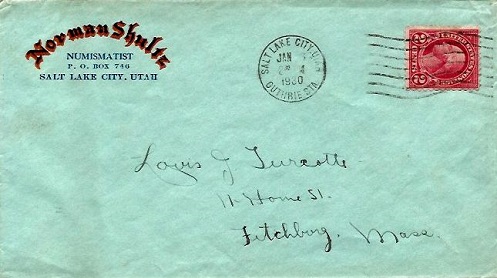 Norman Shultz
NUMISMATIST
P. O. BOX 746
SALT LAKE CITY, UTAH
SALT LAKE CITY, UTAH
JAN
1930
GUTHRIE STA.
2 CENTS 2
Louis J Turcotte
11 Home St.
Fitchburg, Mass.